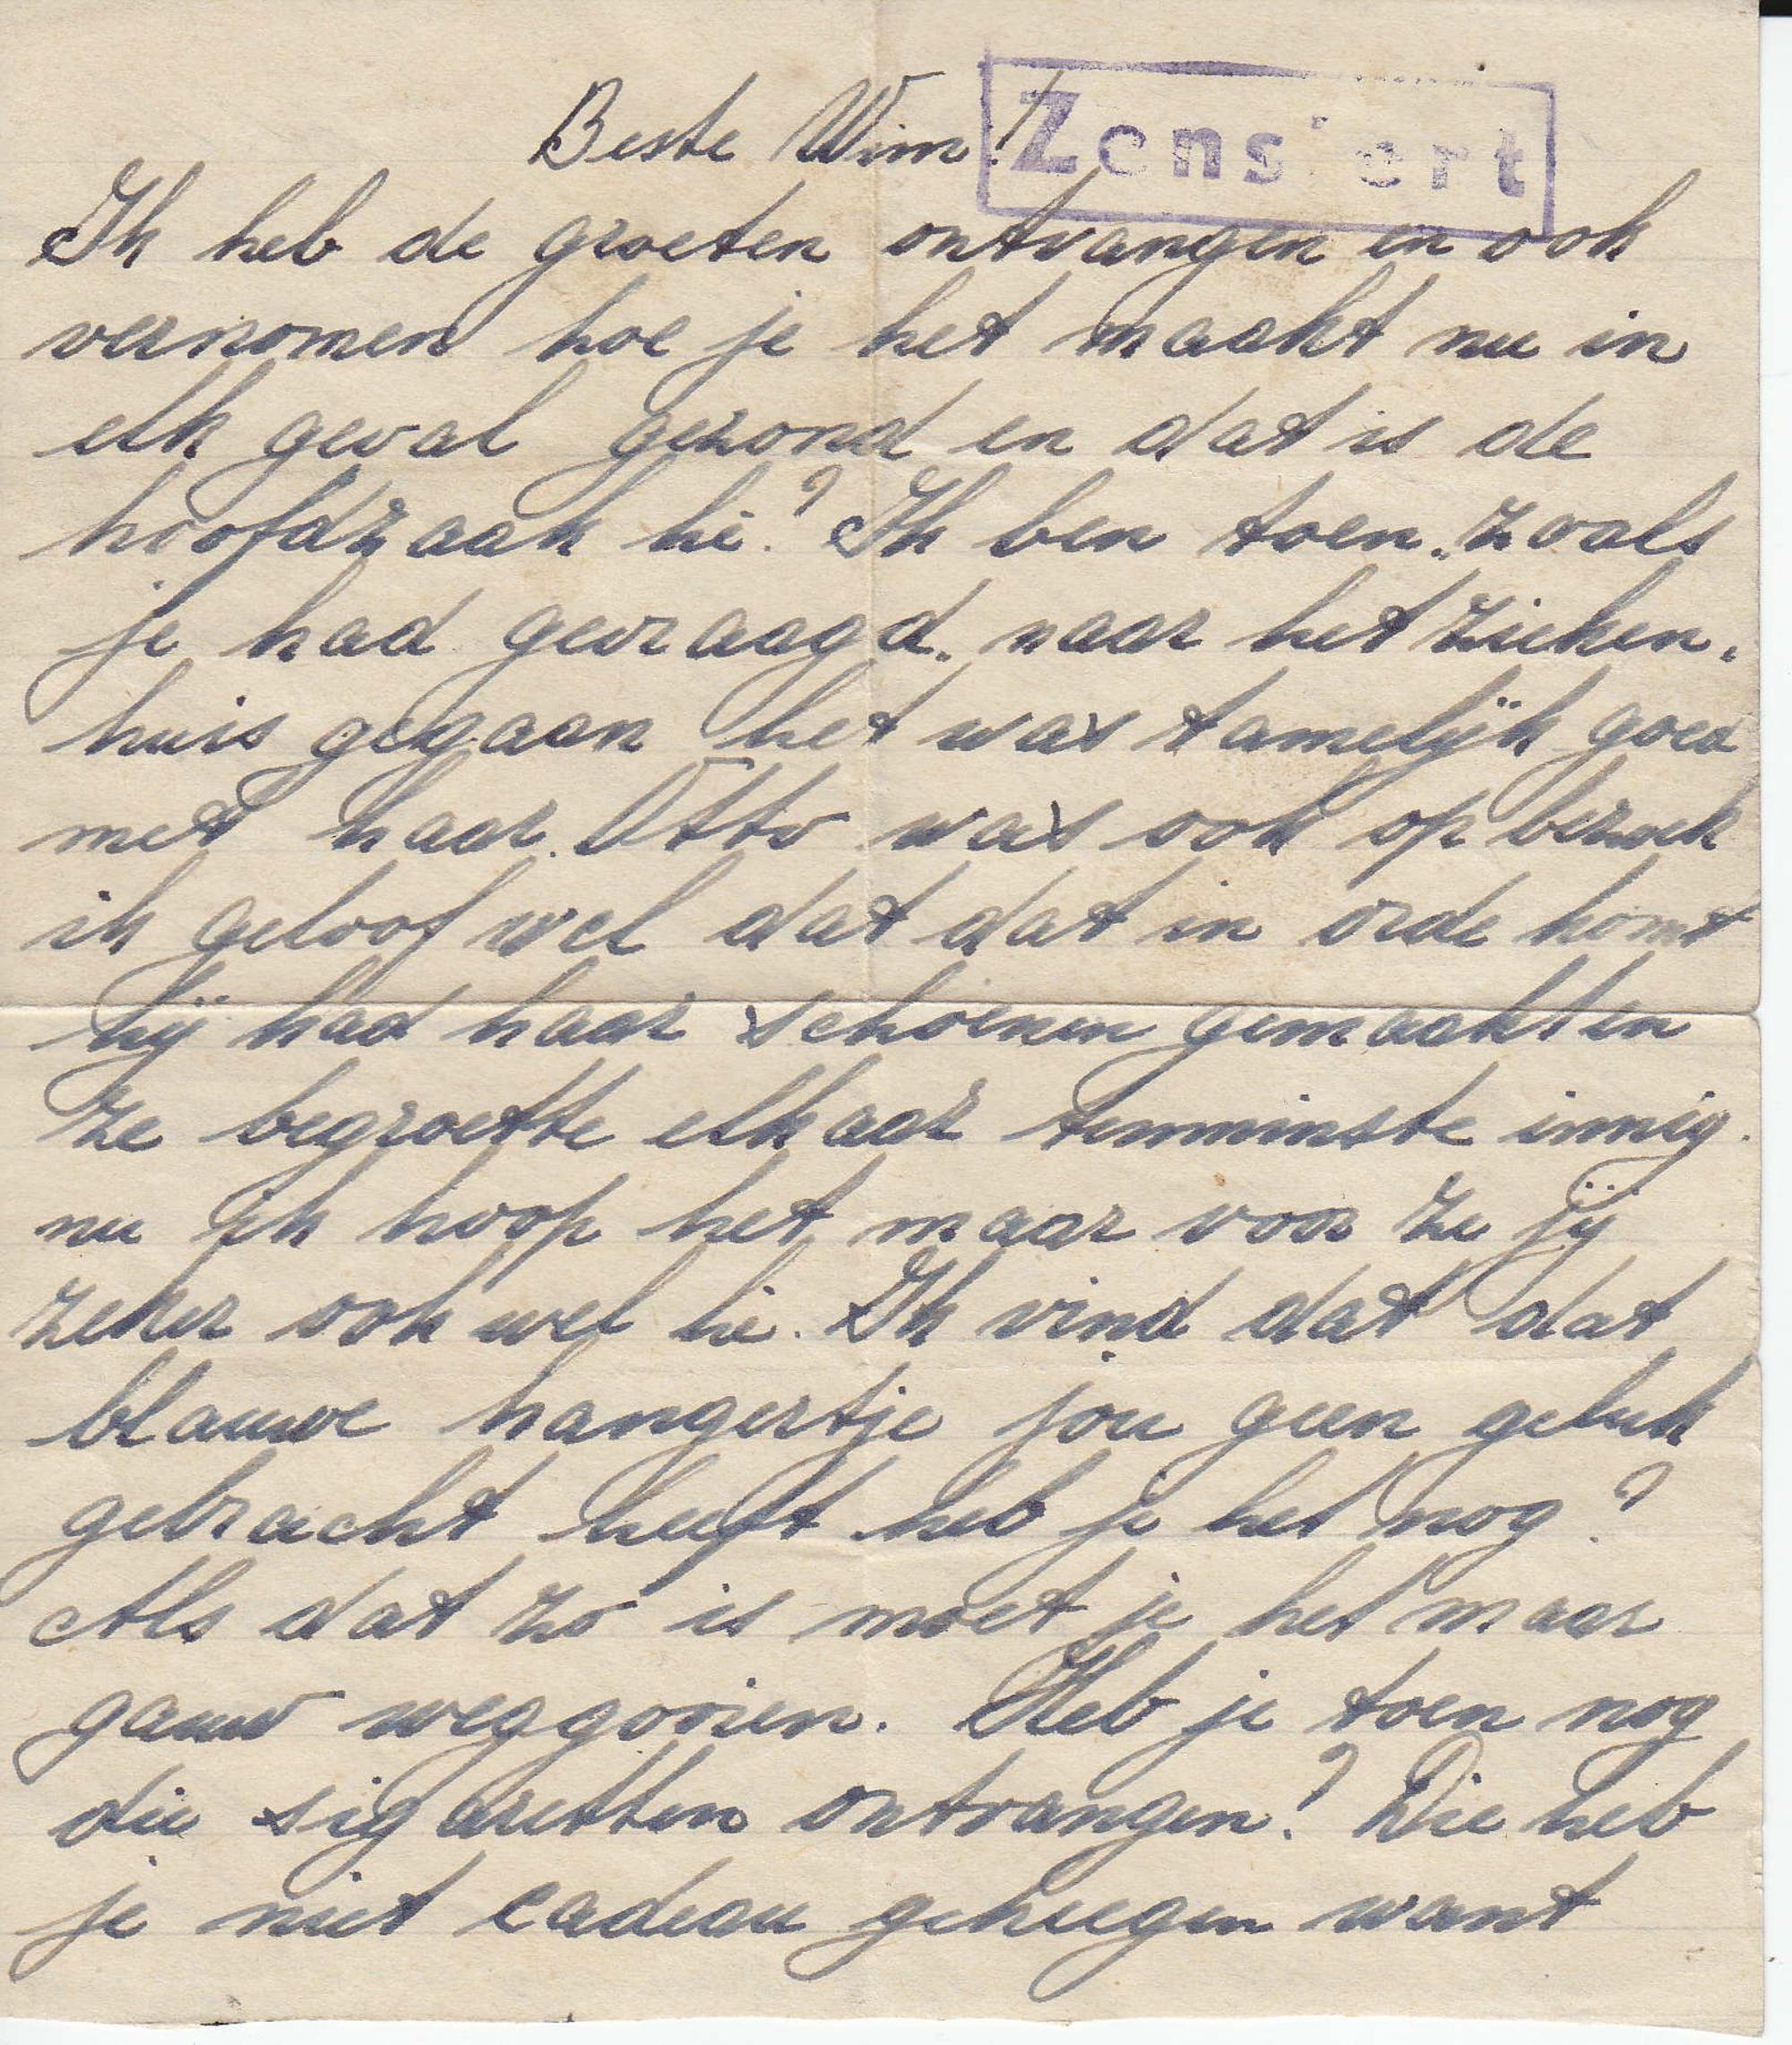 Beste Wim!
Zensiert
Ik heb de groeten ontvangen en ook
vernomen hoe je het maakt nu in
elk geval gezond en dat is de
hoofdzaak hè? Ik ben toen „zoals
je had gevraagd„ naar het zieken„
huis gegaan het was tamelijk goed
met haar. Otto was ook op bezoek
ik geloof wel dat dat in orde komt
hij had haar schoenen gemaakt en
ze begroette elkaar tenminste innig.
nu ik hoop het maar voor ze jij
zeker ook wel hè. Ik vind dat dat
blauwe hangertje jou geen geluk
gebracht heeft heb je het nog?
Als dat zo is moet je het maar
gauw weggooien. Heb je toen nog
die sigaretten ontvangen? Die heb
je niet cadeau gekregen want